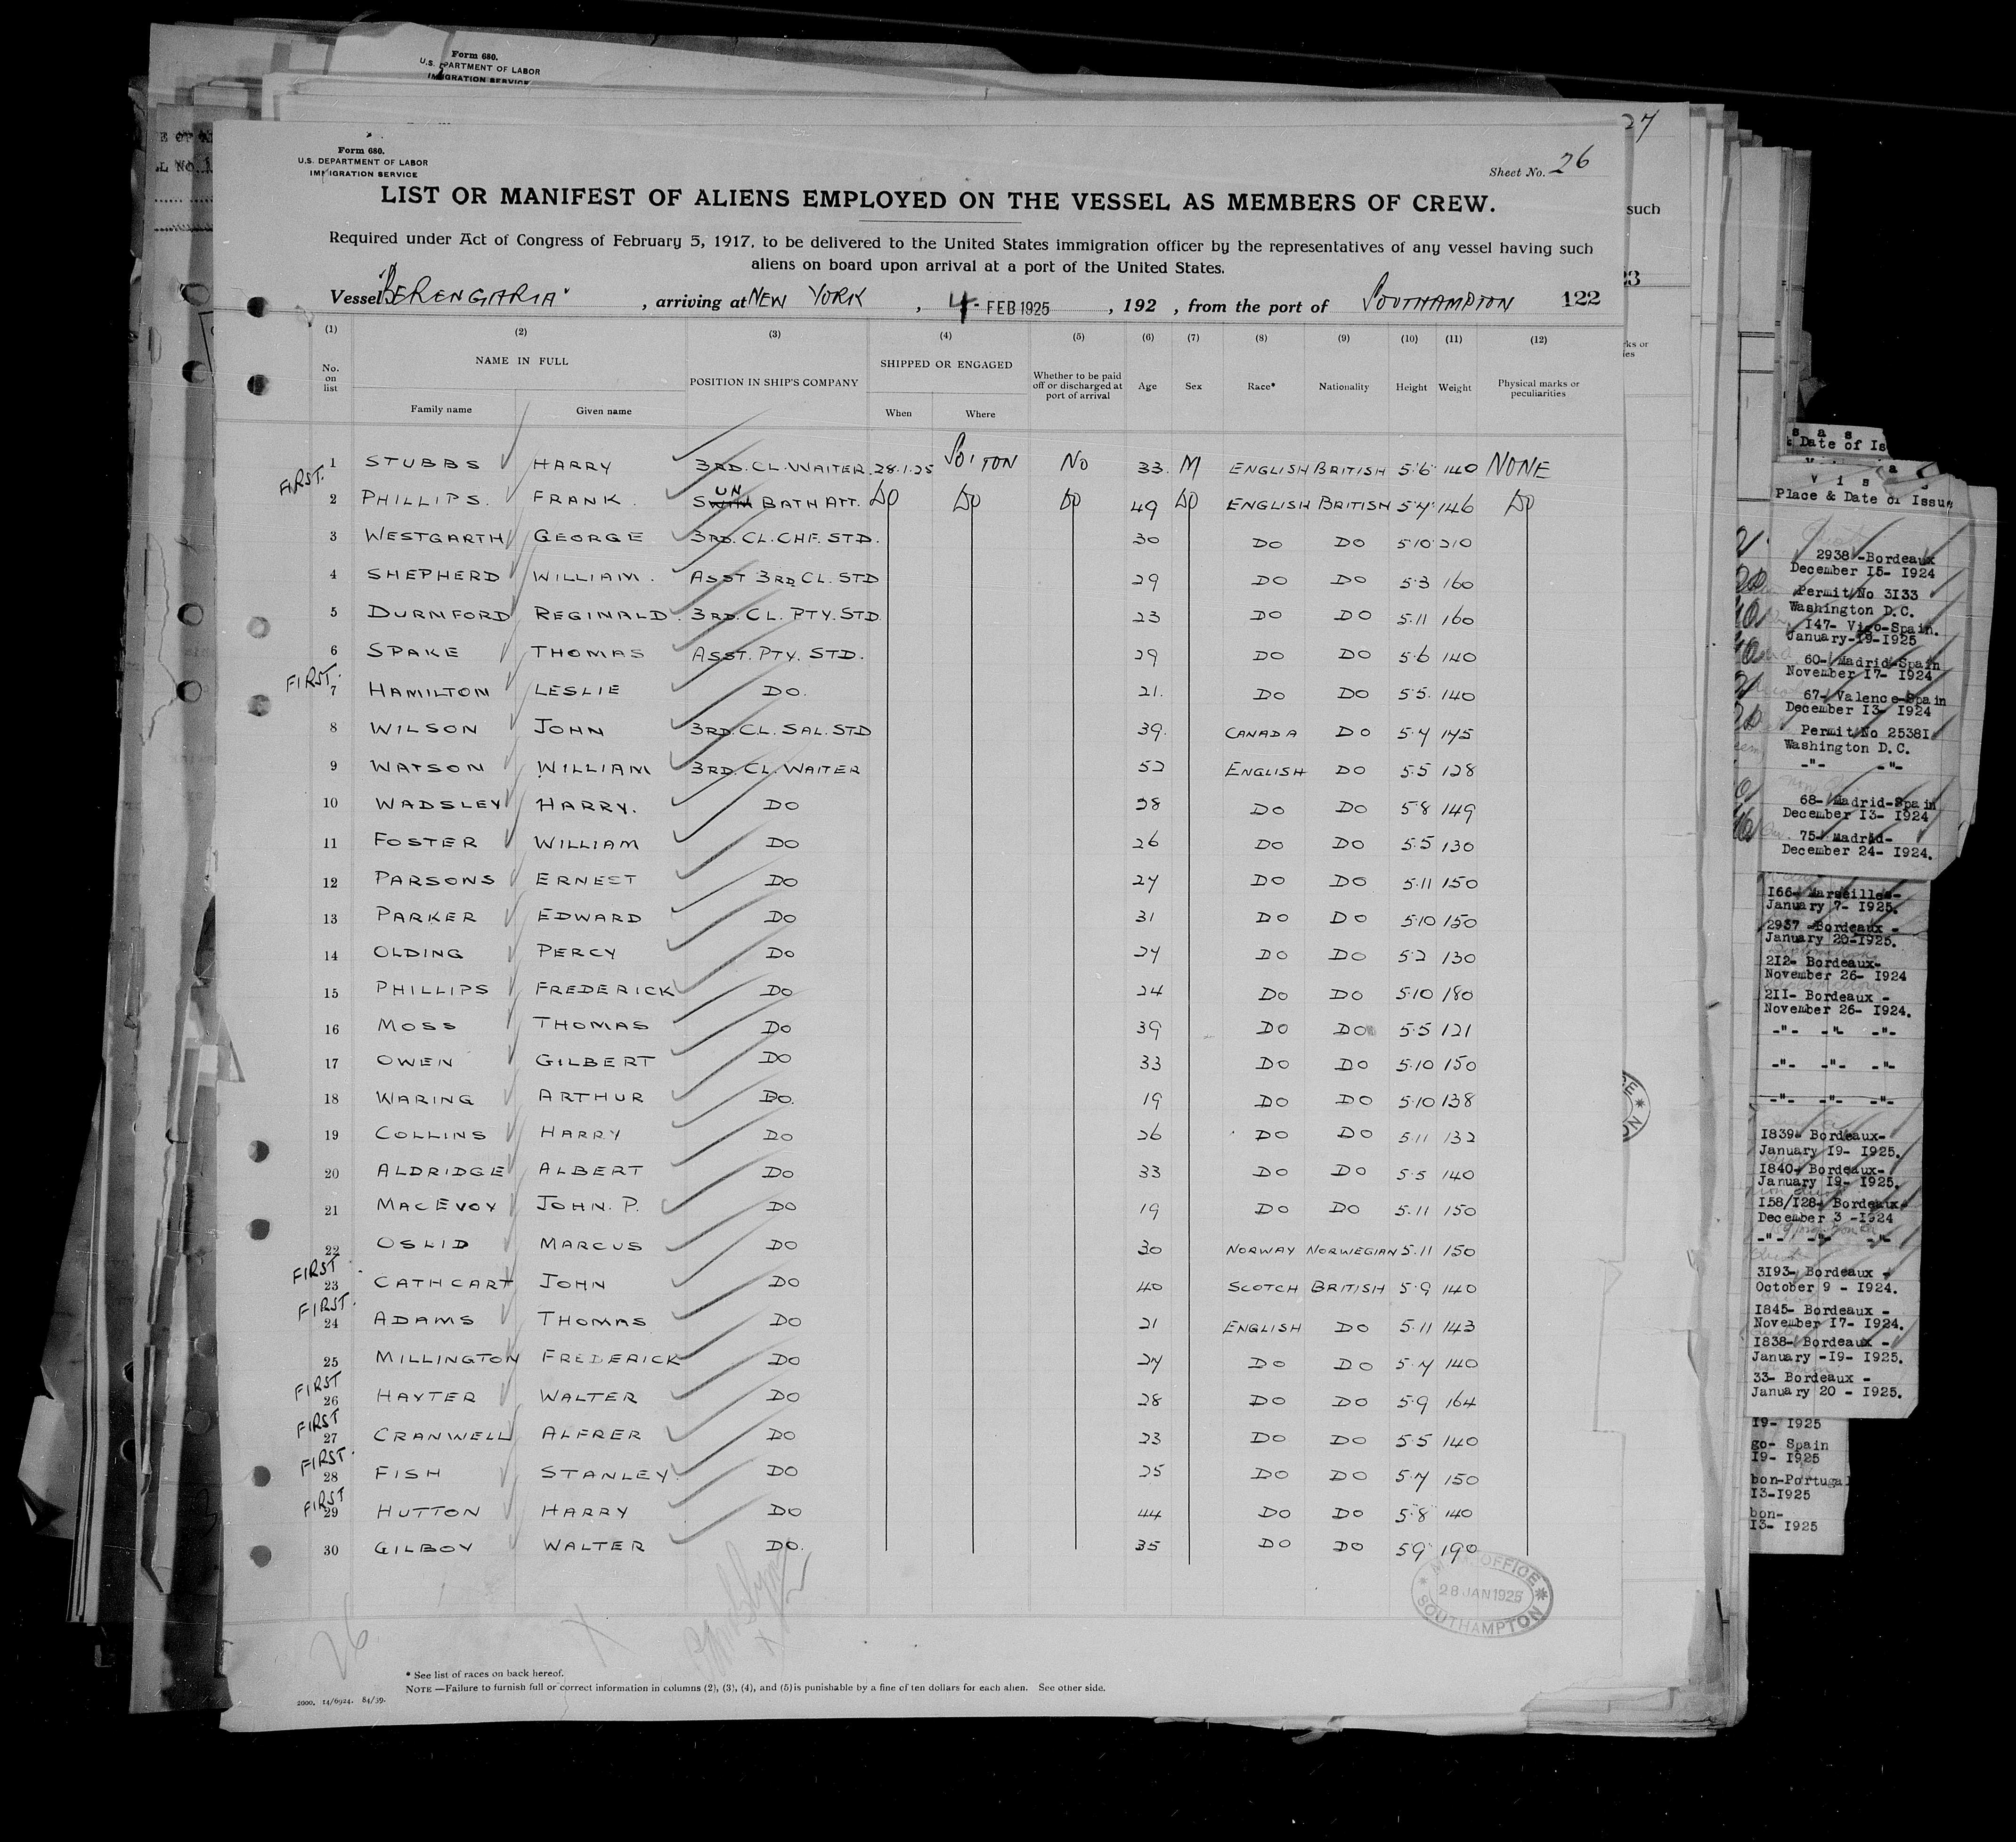 Form 680.
U.S. DEPARTMENT OF LABOR
IMMIGRATION SERVICE
27
Form 680.
U.S. DEPARTMENT OF LABOR
IMMIGRATION SERVICE
Sheet No. 26
LIST OR MANIFEST OF ALIENS EMPLOYED ON THE VESSEL AS MEMBERS OF CREW.
Required under Act of Congress of February 5, 1917, to be delivered to the United States immigration officer by the representatives of any vessel having such
aliens on board upon arrival at a port of the United States.
Vessel "BERENGARIA" , arriving at NEW YORK , 4- FEB 1925 , 192 , from the port of SOUTHAMPTON 122
(1) (2) (3) (4) (5) (6) (7) (8) (9) (10) (11) (12)
No. on list NAME IN FULL POSITION IN SHIP'S COMPANY SHIPPED OR ENGAGED Whether to be paid off or discharged at port of arrival Age Sex Race* Nationality Height Weight Physical marks or peculiarities
Family name Given name When Where
1 STUBBS HARRY 3RD. CL. WAITER 28.1.25 SO'TON NO 33. M ENGLISH BRITISH 5.6 140 NONE
FIRST. 2 PHILLIPS. FRANK. SWIM UN BATH ATT. DO DO DO 49 DO ENGLISH BRITISH 5.7 146 DO
3 WESTGARTH GEORGE 3RD. CL. CHF. STD. 30 DO DO 5.10 210
4 SHEPHERD WILLIAM. ASST 3RD CL. STD 29 DO DO 5.3 160
5 DURNFORD REGINALD. 3RD. CL. PTY. STD. 23 DO DO 5.11 160
6 SPAKE THOMAS ASST. PTY. STD. 29 DO DO 5.6 140
FIRST. 7 HAMILTON LESLIE DO. 21. DO DO 5.5. 140
8 WILSON JOHN 3RD. CL. SAL. STD 39. CANADA DO 5.7 175
9 WATSON WILLIAM 3RD. CL. WAITER 52 ENGLISH DO 5.5 128
10 WADSLEY HARRY. DO 38 DO DO 5.8 149
11 FOSTER WILLIAM DO 26 DO DO 5.5 130
12 PARSONS ERNEST DO 27 DO DO 5.11 150
13 PARKER EDWARD DO 31 DO DO 5.10 150
14 OLDING PERCY DO 27 DO DO 5.2 130
15 PHILLIPS FREDERICK DO 24 DO DO 5.10 180
16 MOSS THOMAS DO 39 DO DO 5.5 121
17 OWEN GILBERT DO 33 DO DO 5.10 150
18 WARING ARTHUR DO. 19 DO DO 5.10 138
19 COLLINS HARRY DO 26 DO DO 5.11 132
20 ALDRIDGE ALBERT DO 33 DO DO 5.5 140
21 MACEVOY JOHN. P. DO 19 DO DO 5.11 150
22 OSLID MARCUS DO 30 NORWAY NORWEGIAN 5.11 150
FIRST. 23 CATHCART JOHN DO 40 SCOTCH BRITISH 5.9 140
FIRST. 24 ADAMS THOMAS DO 21 ENGLISH DO 5.11 143
25 MILLINGTON FREDERICK DO 27 DO DO 5.7 140
FIRST 26 HAYTER WALTER DO 28 DO DO 5.9 164
FIRST 27 CRANWELL ALFRER DO 23 DO DO 5.5 140
FIRST. 28 FISH STANLEY DO 25 DO DO 5.7 150
FIRST 29 HUTTON HARRY DO 44 DO DO 5.8 140
30 GILBOY WALTER DO. 35 DO DO 5.9 190
OFFICE
28 JAN 1925
SOUTHAMPTON
26
* See list of races on back hereof.
NOTE —Failure to furnish full or correct information in columns (2), (3), (4), and (5) is punishable by a fine of ten dollars for each alien. See other side.
2000. 14/6924. 84/39.
such
23
Date of Is
V i s
Place & Date of Issue
2938 -Bordeaux
December 15- 1924
Permit No 3133
Washington D.C.
147- Vigo-Spain.
January-19-1925
60- Madrid-Spain
November 17- 1924
67- Valence-Spain
December 13- 1924
Permit No 25381
Washington D.C.
-"- -"-
68- Madrid-Spain
December 13- 1924
75- Madrid-
December 24- 1924.
166- Marseilles-
January 7- 1925.
2937 -Bordeaux -
January 20-1925.
212- Bordeaux-
November 26- 1924
211- Bordeaux -
November 26- 1924.
-"- -"- -"-
-"- -"- -"-
-"- -"- -"-
1839- Bordeaux-
January 19- 1925.
1840- Bordeaux-
January 19- 1925.
158/128- Bordeaux-
December 3 -1924
-"- -"- -"-
3193- Bordeaux -
October 9 - 1924.
1845- Bordeaux -
November 17- 1924.
1838- Bordeaux -
January -19- 1925.
33- Bordeaux -
January 20 - 1925.
19- 1925
go- Spain
19- 1925
bon-Portugal
13-1925
bon-
13- 1925